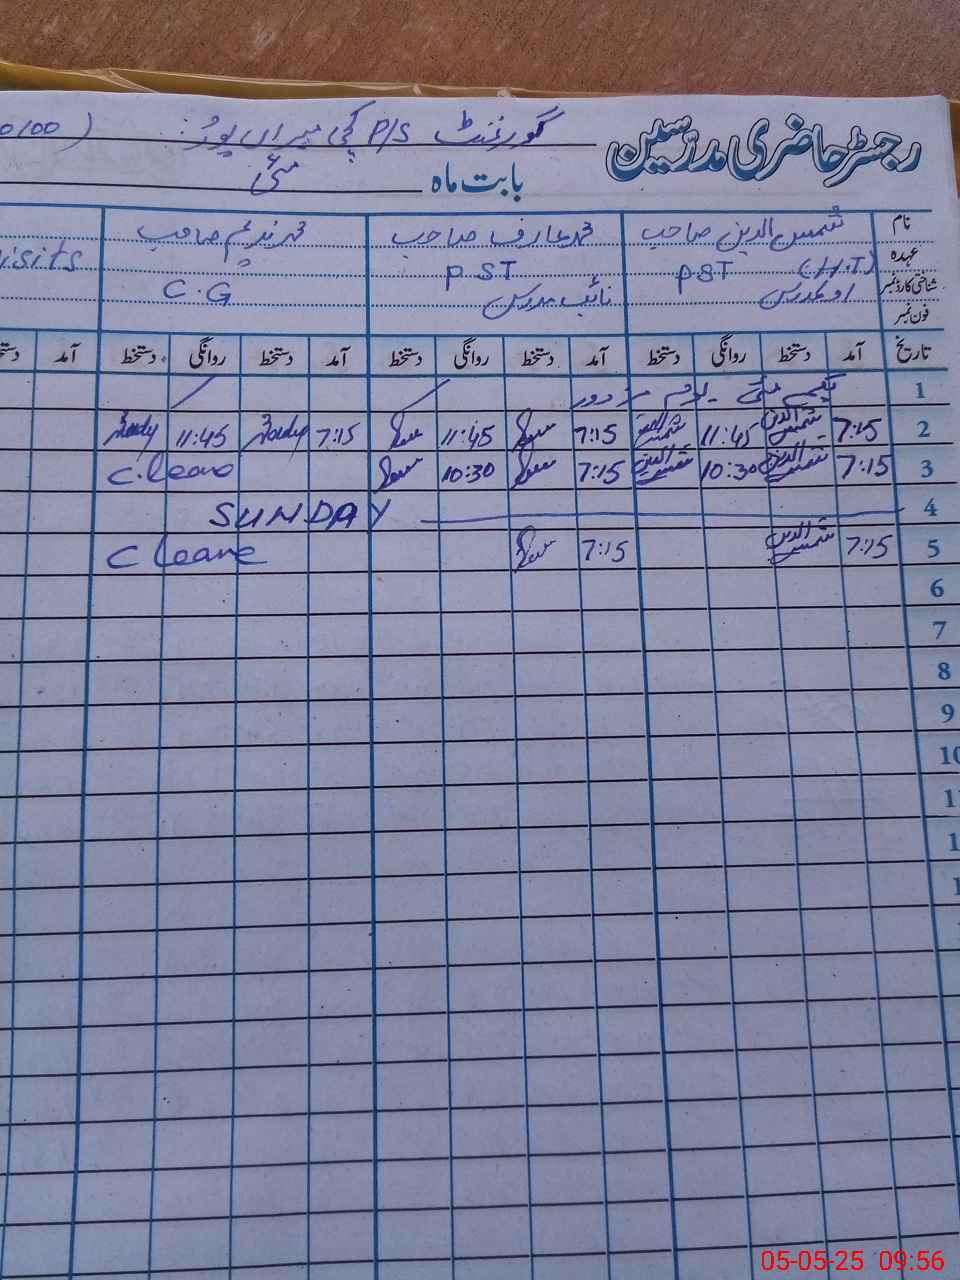 رجسٹر حاضری مدرسین گورنمنٹ P/S پکی میراں پور: (
بابت ماہ مئی
نام شمس الدین صاحب محمد عارف صاحب محمد ندیم صاحب
عہدہ PST (H.T) PST C.G visits
شناختی کارڈ نمبر نائب مدرس
فون نمبر
تاریخ آمد دستخط روانگی دستخط آمد دستخط روانگی دستخط آمد دستخط روانگی دستخط آمد
1 یکم مئی یوم مزدور
2 7:15 شمس الدین 11:45 شمس الدین 7:15 11:45 7:15 11:45
3 7:15 شمس الدین 10:30 شمس الدین 7:15 10:30 C.leave
4 SUNDAY
5 7:15 شمس الدین 7:15 C leave
6
7
8
9
10
05-05-25 09:56